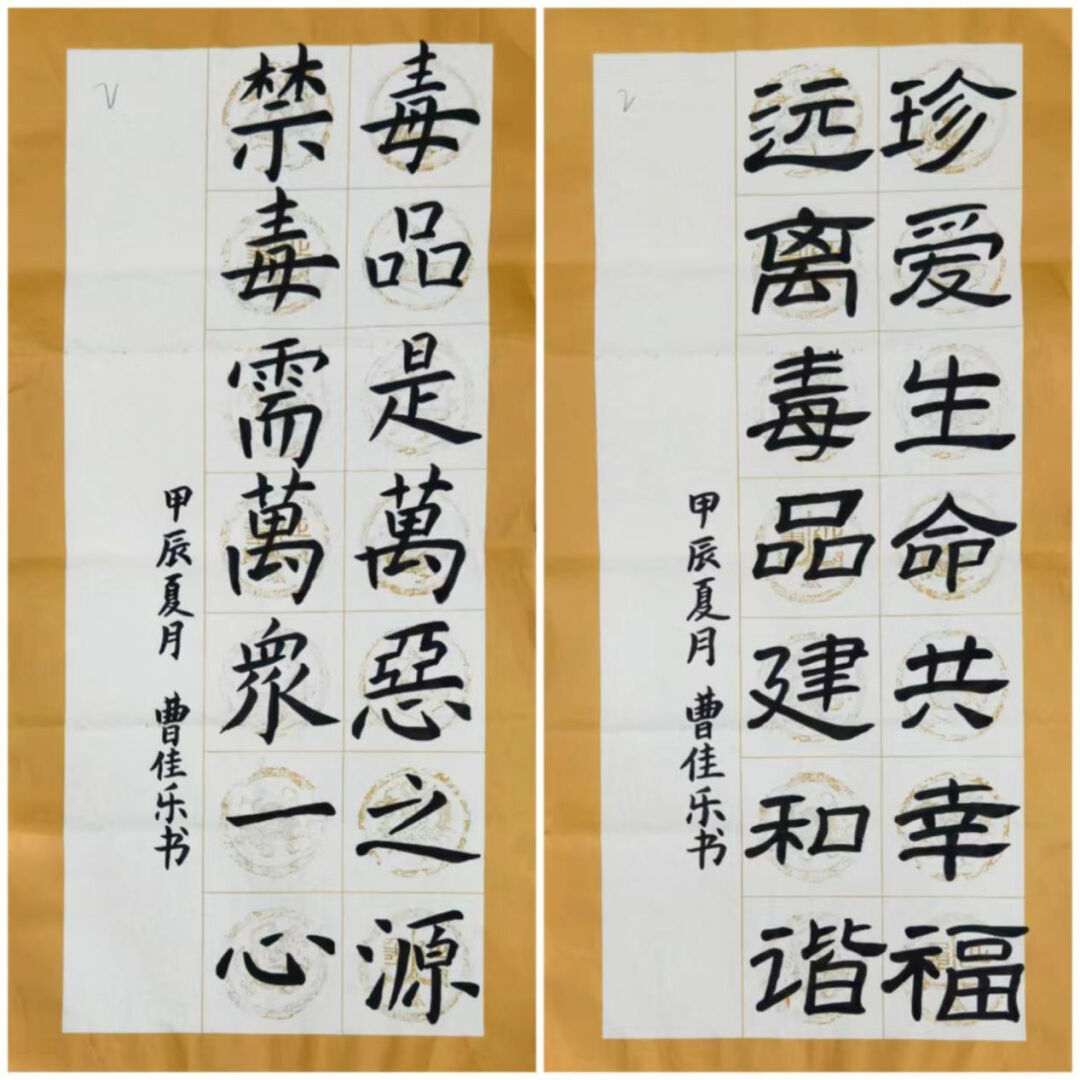 毒品是萬惡之源
禁毒需萬眾一心
甲辰夏月 曹佳乐书
珍爱生命共幸福
远离毒品建和谐
甲辰夏月 曹佳乐书